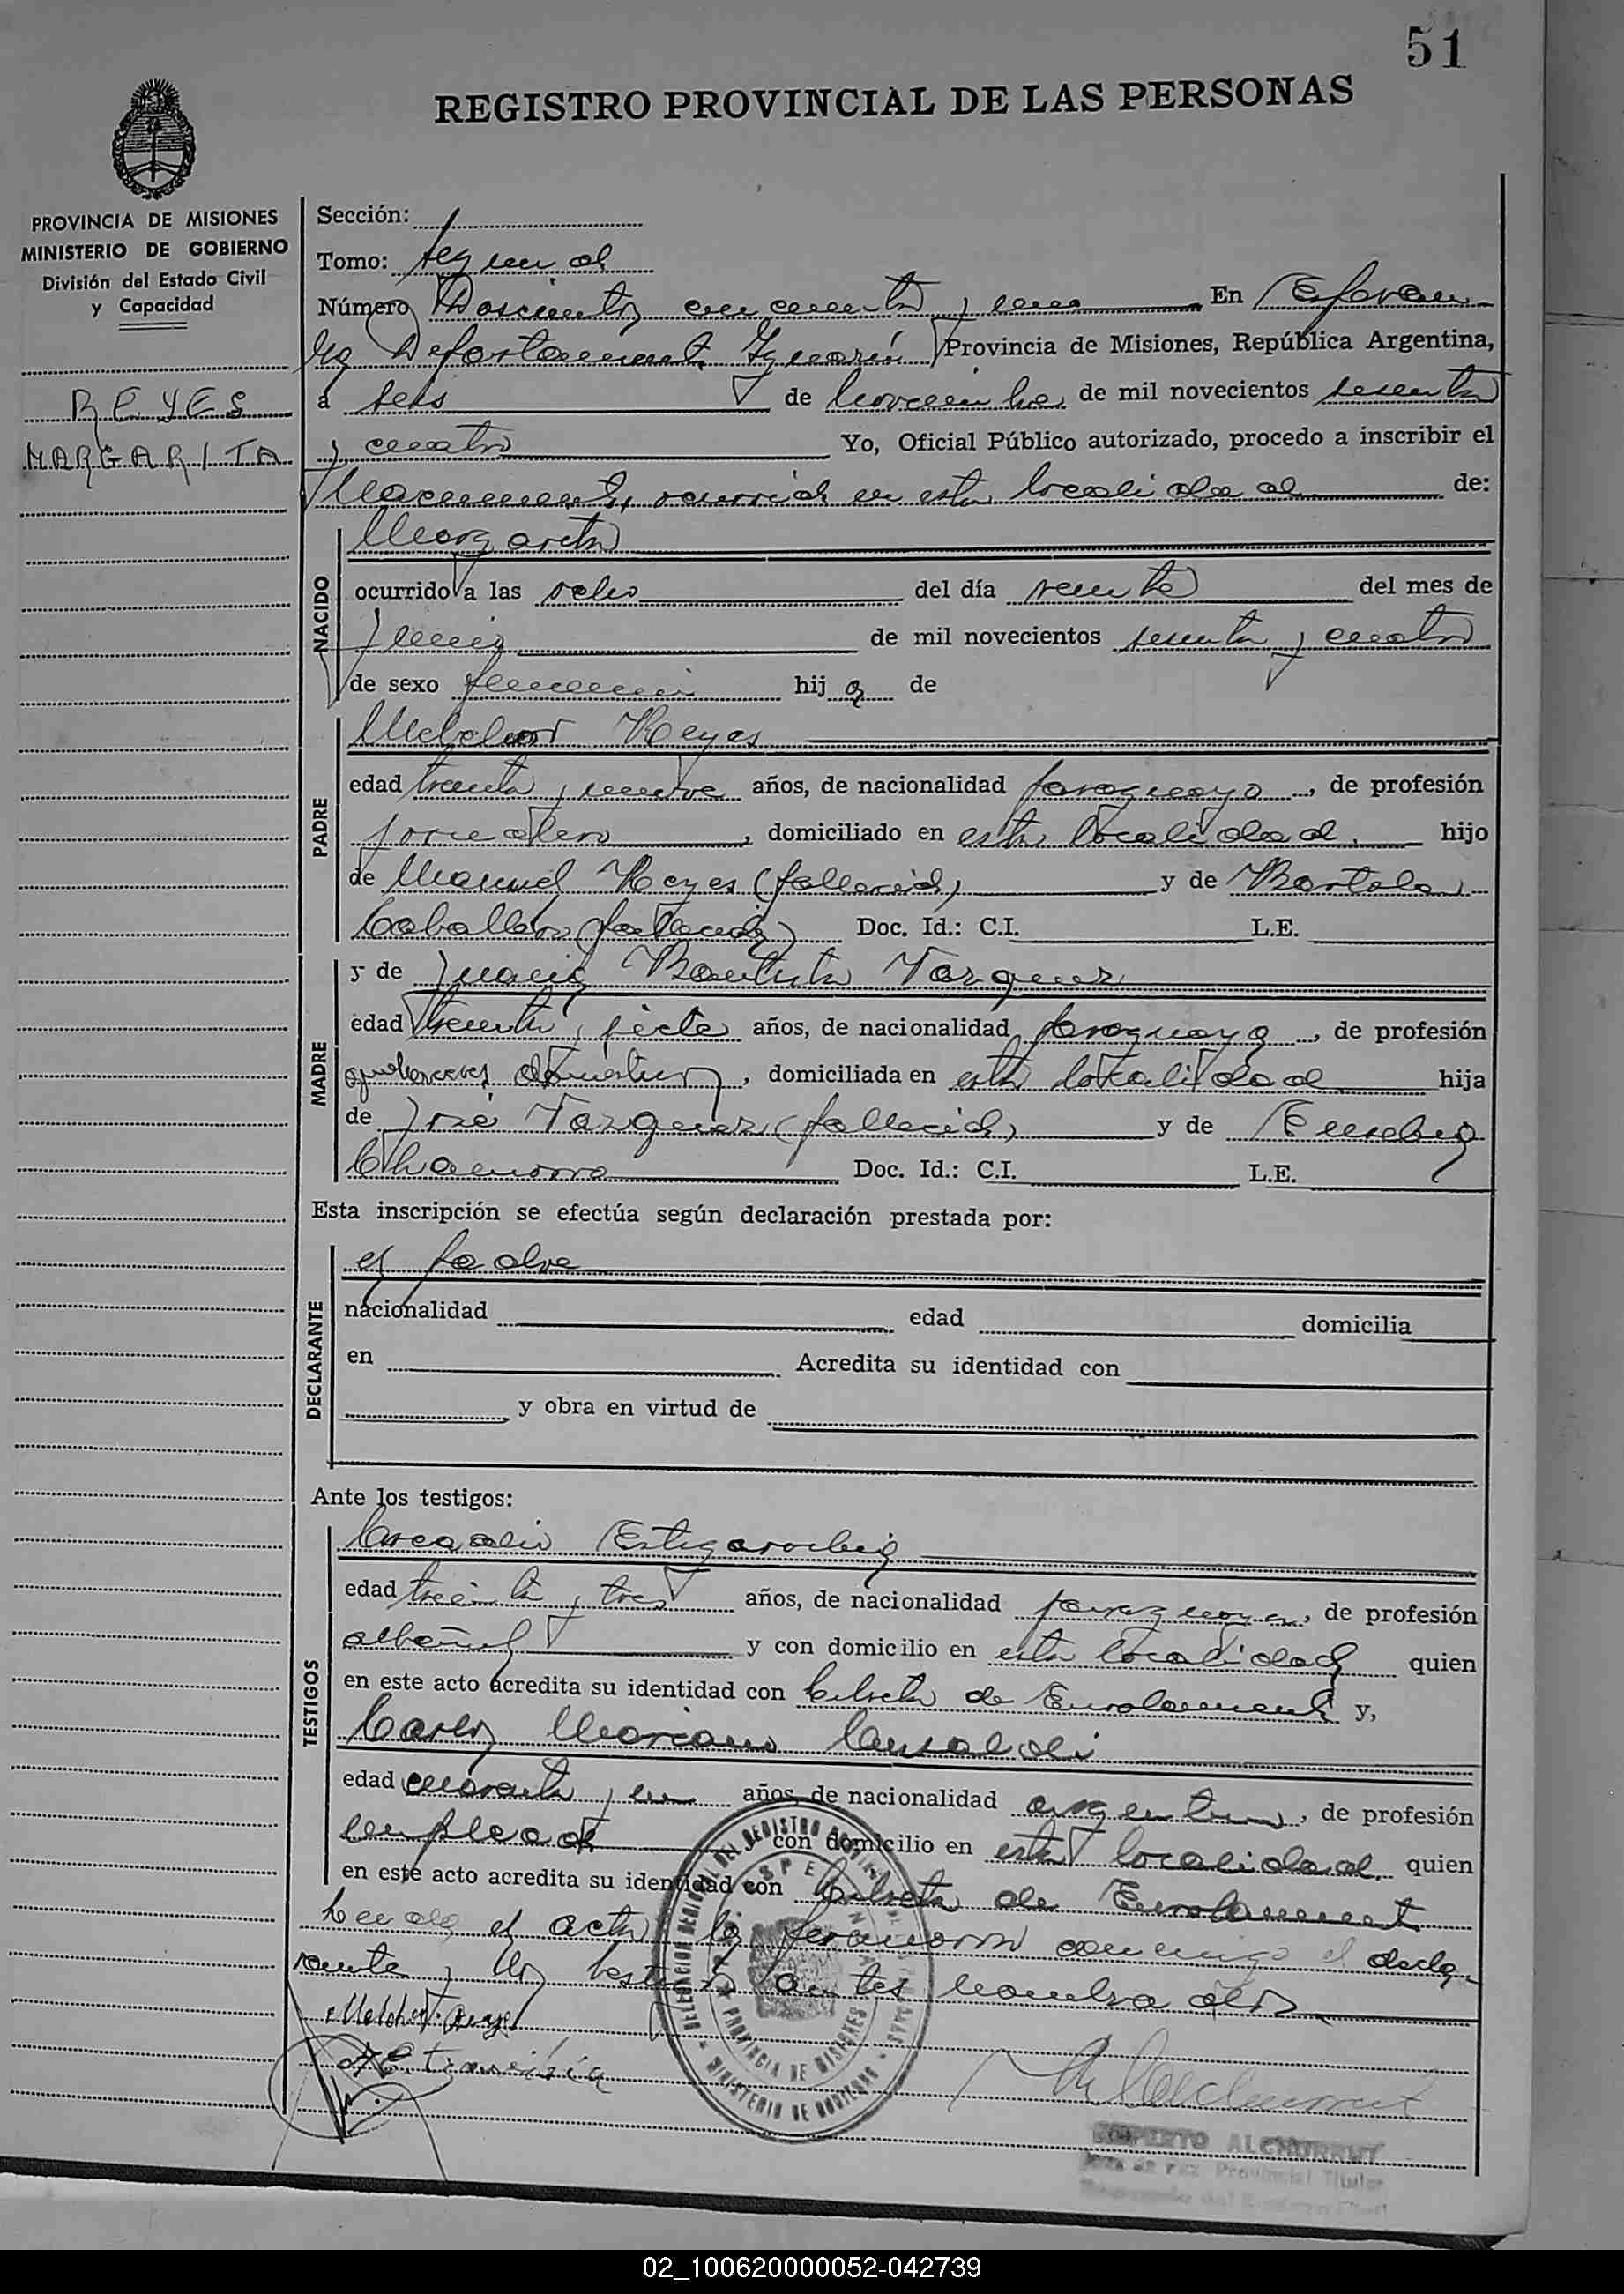 51
REGISTRO PROVINCIAL DE LAS PERSONAS
PROVINCIA DE MISIONES
MINISTERIO DE GOBIERNO
División del Estado Civil
y Capacidad
REYES
MARGARITA
Sección: 1
Tomo: segundo
Número Doscientos cincuenta y uno En Esperan
za Departamento Iguazú Provincia de Misiones, República Argentina,
a seis de noviembre de mil novecientos sesenta
y cuatro Yo, Oficial Público autorizado, procedo a inscribir el
Nacimiento, ocurrido en esta localidad de:
Margarita
NACIDO
ocurrido a las ocho del día veinte del mes de
Junio de mil novecientos sesenta y cuatro
de sexo femenino hij a de
PADRE
Melchor Reyes
edad treinta y nueve años, de nacionalidad paraguayo, de profesión
jornalero, domiciliado en esta localidad, hijo
de Manuel Reyes (fallecido) y de Bartola
Caballero (fallecida) Doc. Id.: C.I. L.E.
MADRE
y de Juana Bautista Vazquez
edad treinta y siete años, de nacionalidad paraguaya, de profesión
quehaceres domésticos, domiciliada en esta localidad hija
de José Vazquez (fallecido) y de Eusebia
Chamorro Doc. Id.: C.I. L.E.
Esta inscripción se efectúa según declaración prestada por:
DECLARANTE
el padre
nacionalidad edad domicilia
en Acredita su identidad con
y obra en virtud de
Ante los testigos:
TESTIGOS
Arcadio Estigarribia
edad treinta y tres años, de nacionalidad paraguaya, de profesión
albañil y con domicilio en esta localidad quien
en este acto acredita su identidad con Libreta de Enrolamiento y,
Carlos Mariano
edad cuarenta y un años, de nacionalidad argentino, de profesión
empleado con domicilio en esta localidad, quien
en este acto acredita su identidad con Libreta de Enrolamiento
Leida el acta la firmaron conmigo el decla-
rante y los testigos antes nombrados
Melchor Reyes
DELEGACION DEL REGISTRO
PROVINCIA DE MISIONES
MINISTERIO DE GOBIERNO
ROBERTO ALCHURRUT
Juez de Paz Provincial Titular
02_100620000052-042739